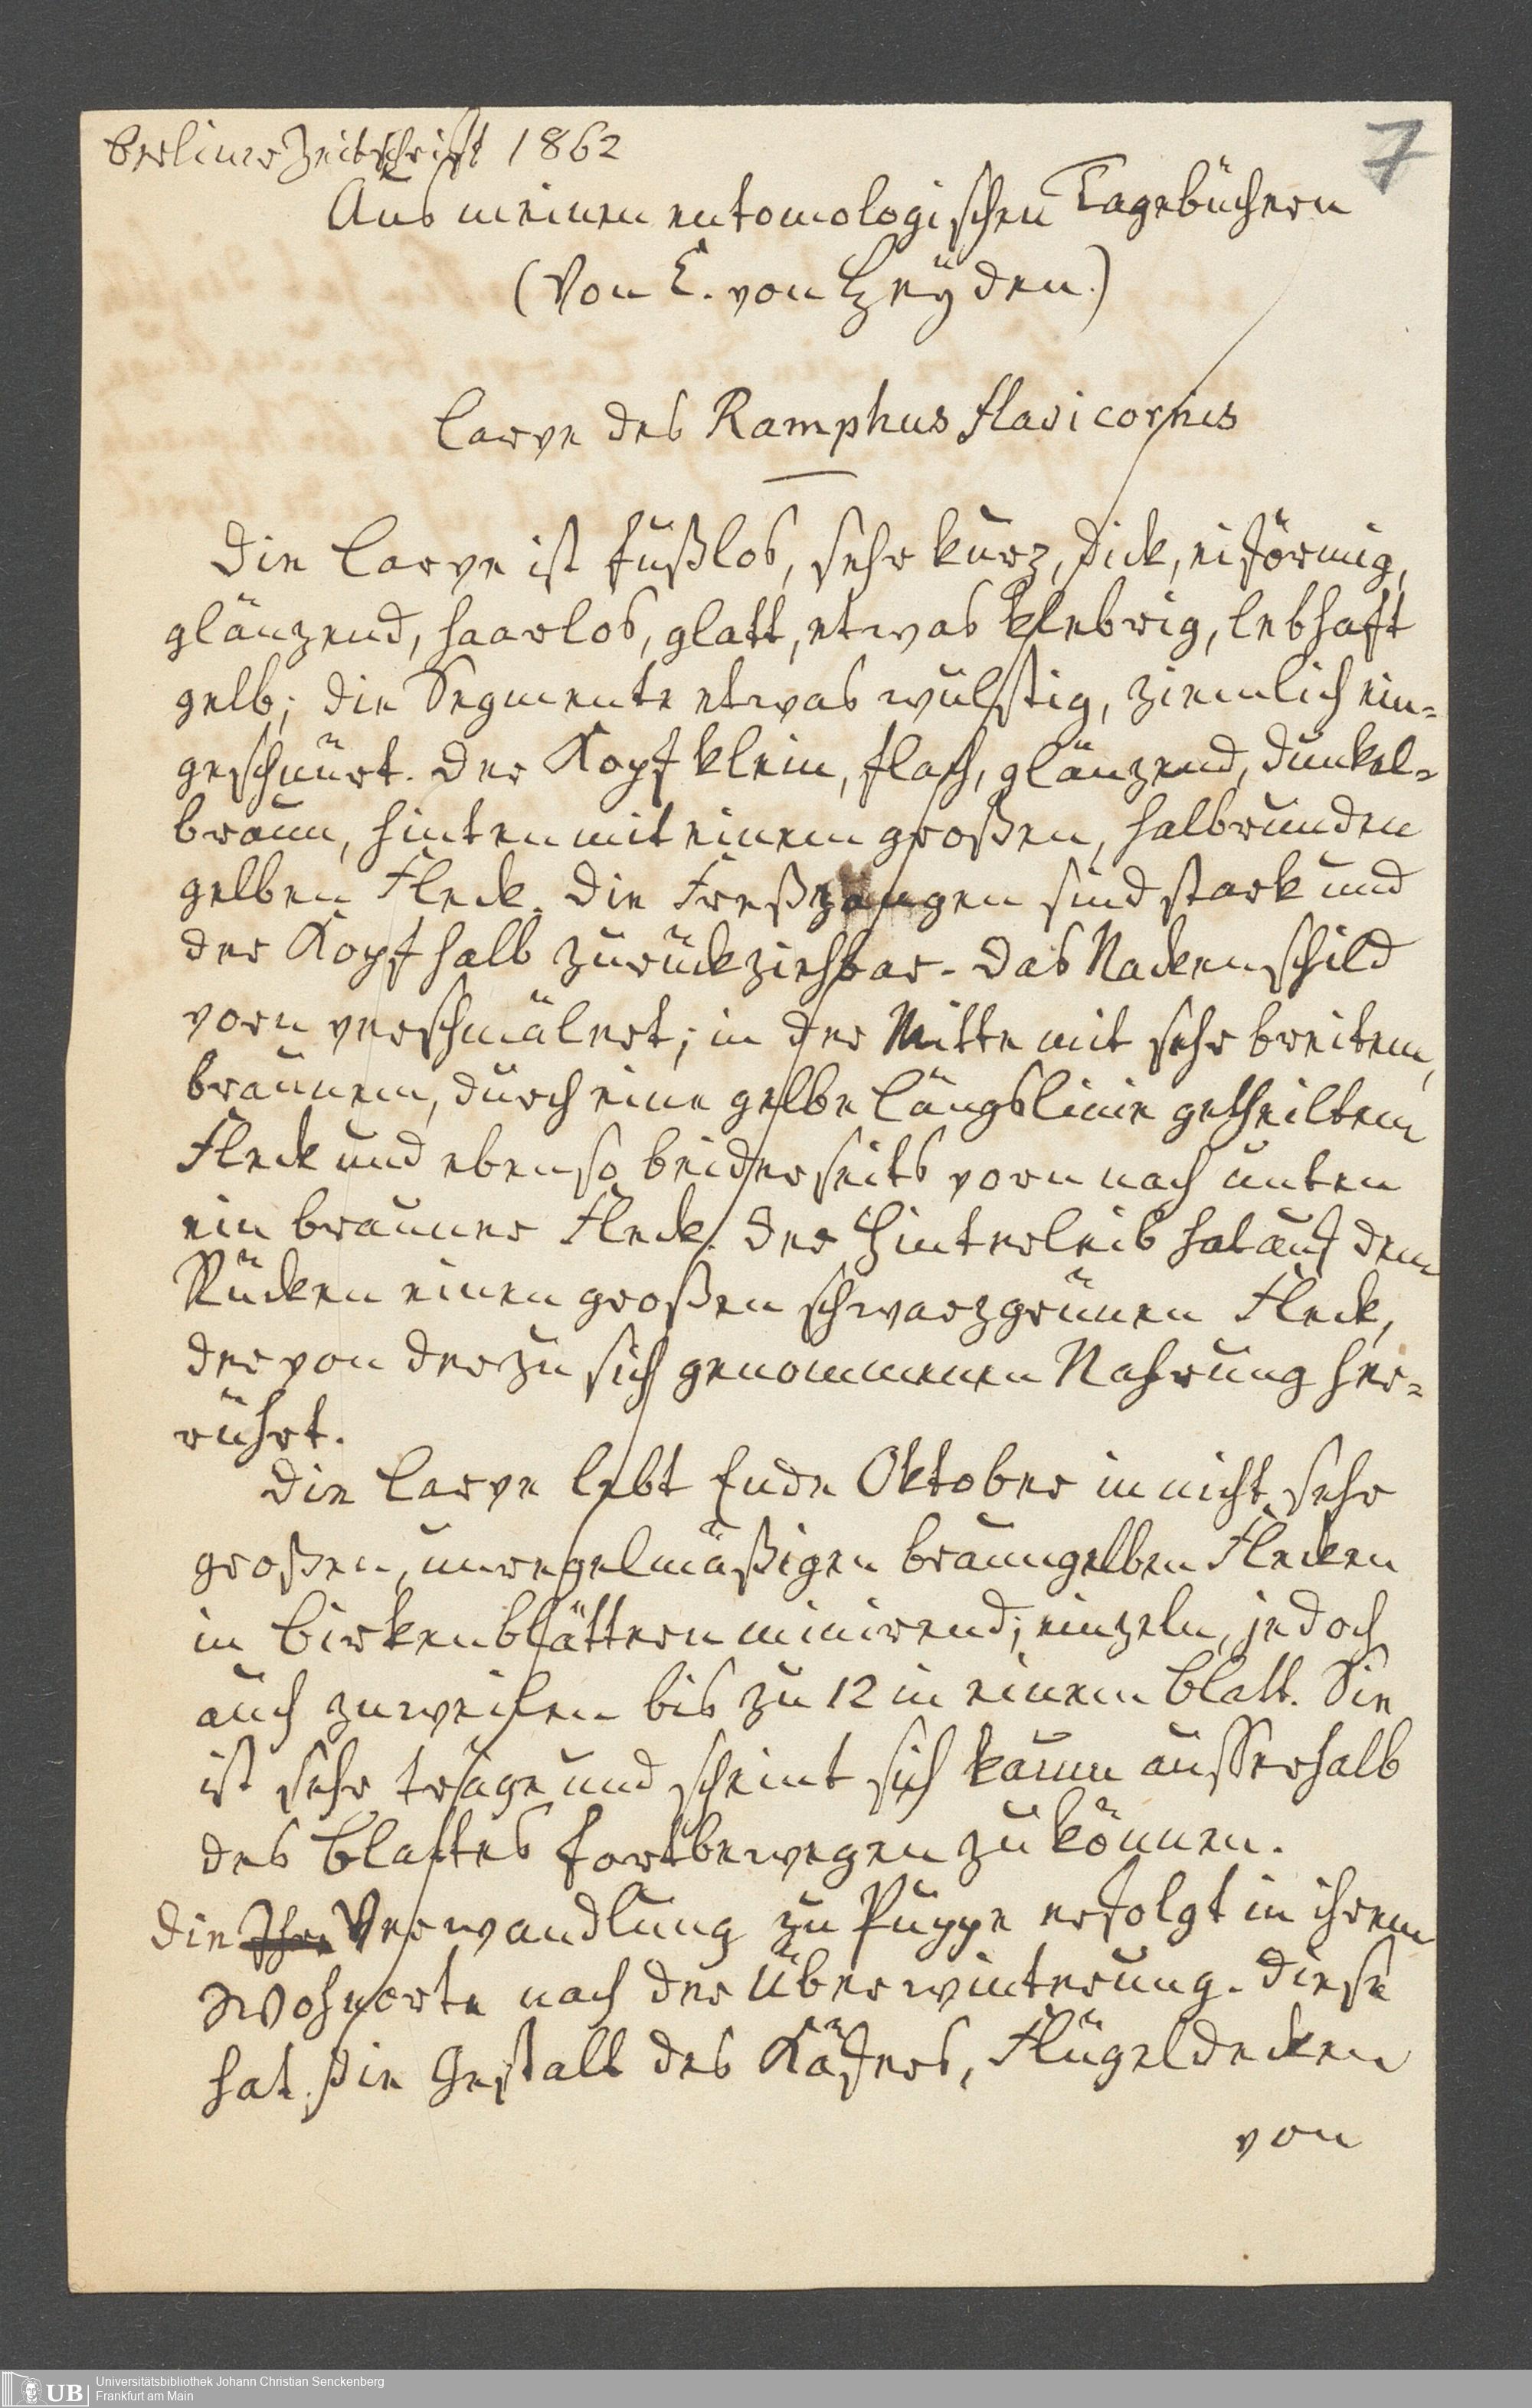 Berliner Zeitschrift 1862
7
Aus meinen entomologischen Tagebüchern
(Von C. von Heyden.)
Larve des Ramphus flavicornis
Die Larve ist fußlos, sehr kurz, dick, eiförmig,
glänzend, haarlos, glatt, etwas klebrig, lebhaft
gelb; die Segmente etwas wulstig, ziemlich ein=
geschnürt. Der Kopf klein, flach, glänzend, dunkel=
braun, hinten mit einem großen, halbrunden
gelben Fleck. Die Freßzangen sind stark und
der Kopf halb zurückziehbar. Das Nackenschild
vorn verschmälert; in der Mitte mit sehr breitem,
braunem, durch eine gelbe Längslinie getheiltem
Fleck und ebenso beiderseits vorn nach unten
ein brauner Fleck. Der Hinterleib hat auf dem
Rücken einen großen schwarzgrünen Fleck,
der von der zu sich genommenen Nahrung her=
rührt.
Die Larve lebt Ende Oktober in nicht sehr
großen, unregelmäßigen braungelben Flecken
in Birkenblättern minirend; einzeln, jedoch
auch zuweilen bis zu 12 in einem Blatt. Sie
ist sehr träge und scheint sich kaum ausserhalb
des Blattes fortbewegen zu können.
Die Ihre Verwandlung zu Puppe erfolgt in ihrem
Wohnorte nach der Überwinterung. Diese
hat die Gestalt des Käfers, Flügeldecken
von
Universitätsbibliothek Johann Christian Senckenberg
UB Frankfurt am Main